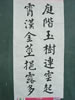 庭階玉樹連雲起
霄漢金莖挹露多